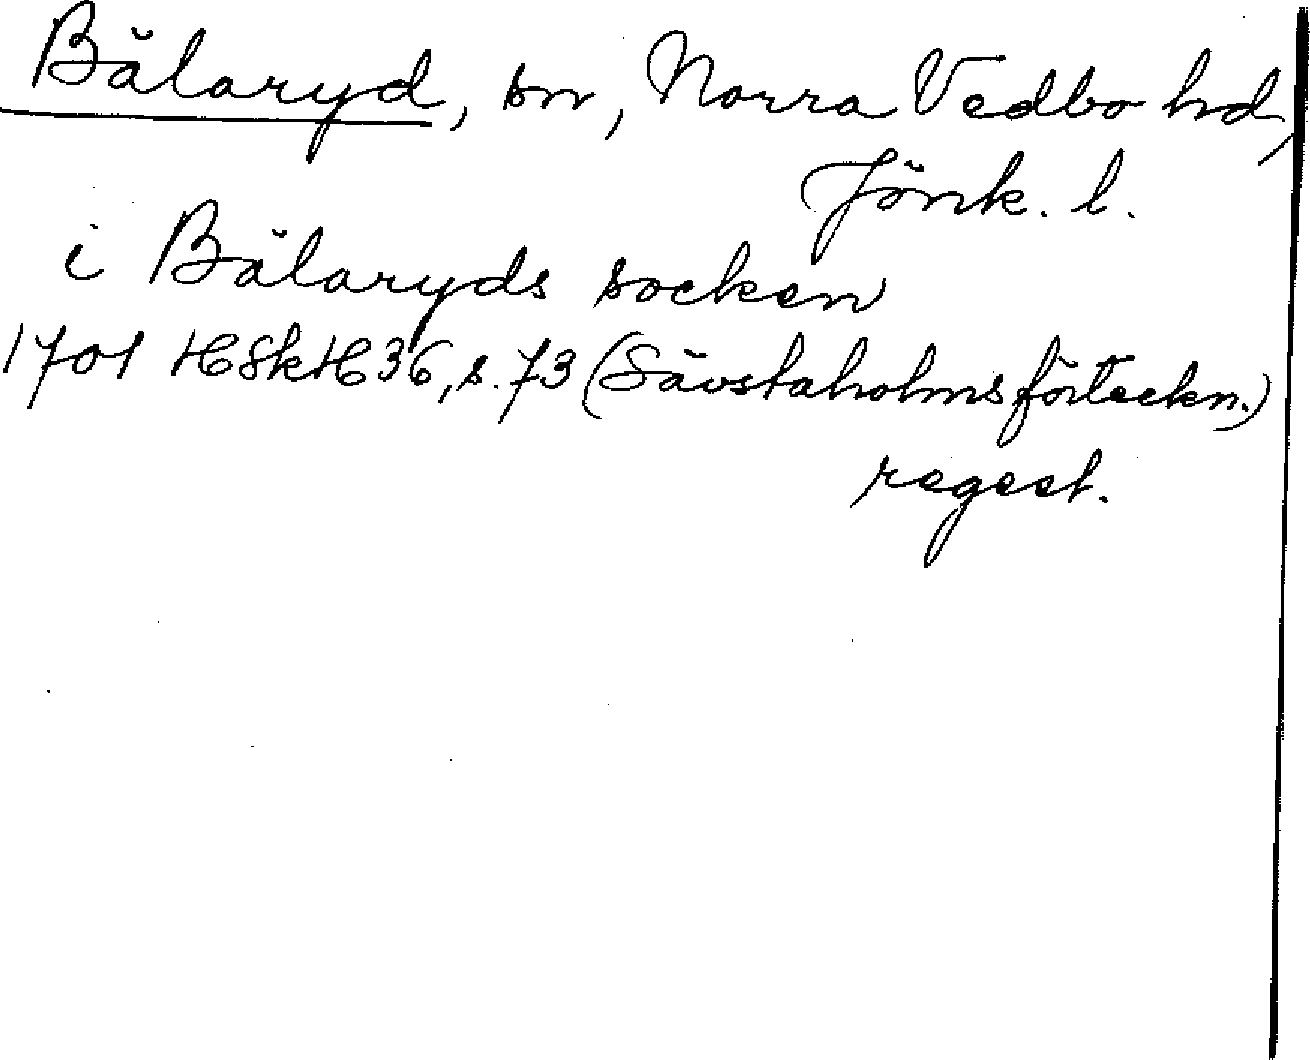 Bälaryd, sn, Norra Vedbo hd,
Jönk. l.
i Bälaryds socken
1701 HSkH 36, s. 73 (Sävstaholmsförteckn.)
regest.